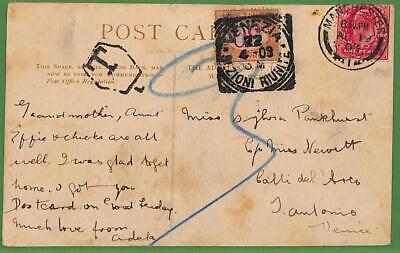 POST CARD
THIS SPACE, AS WELL AS THE BACK, MAY
NOW BE USED FOR COMMUNICATION
Post Office Regulation.
THE AD
T
VENEZIA
4-03
MANCHESTER
6.30 PM
03
Grandmother, Aunt
Effie & chicks are all
well. I was glad to get
home. I got you
Postcard on Good Friday.
Much love from
Adela
Miss Sylvia Pankhurst
c/o Miss Newitt
Calli del Arco
S. Antonio
Venice